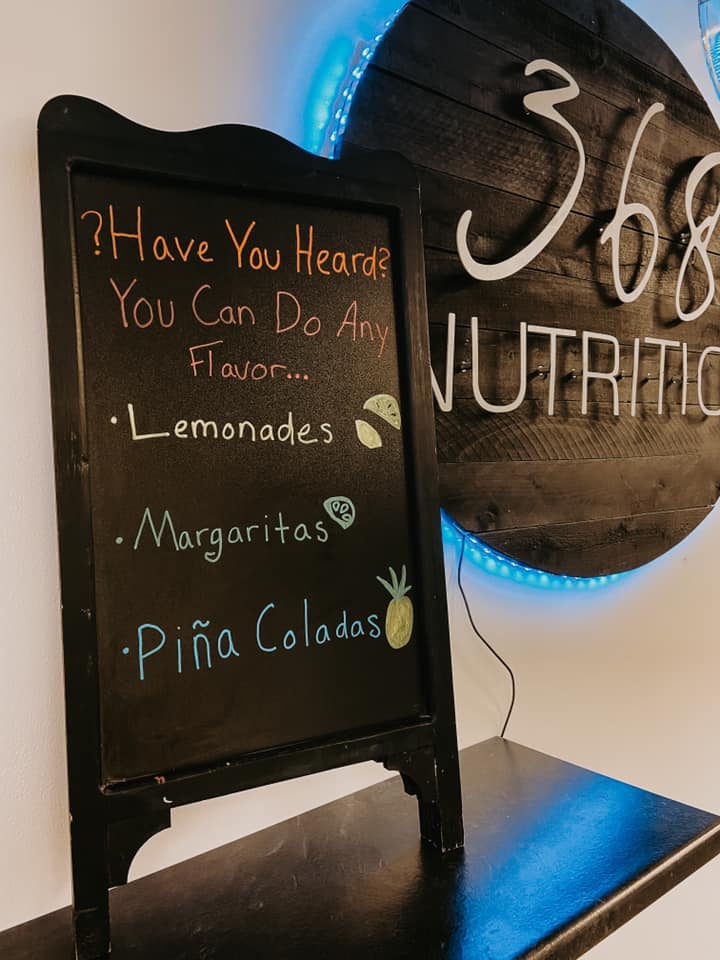 ?Have You Heard?
You Can Do Any
Flavor...
·Lemonades
·Margaritas
·Piña Coladas
368
NUTRITIO